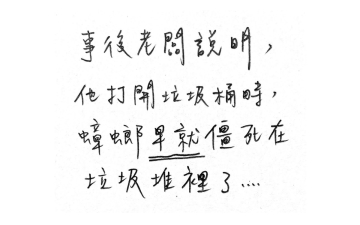 事後老闆說明,
他打開垃圾桶時,
蟑螂早就僵死在
垃圾堆裡了....